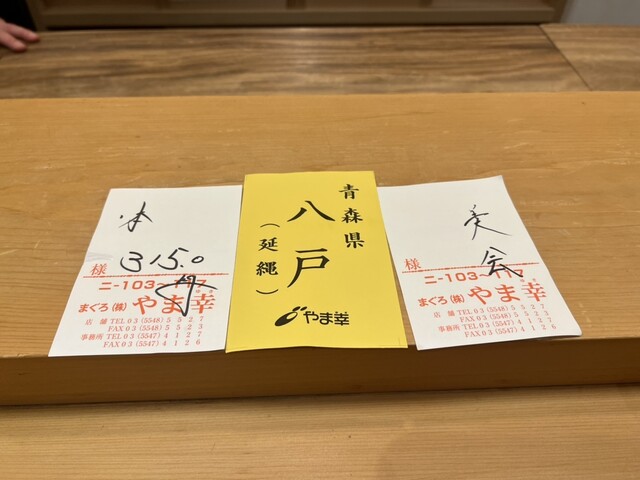 本
様
315.0
ニ-103-
まぐろ(株)やま幸
店 舗 TEL 03 (5548) 5 5 2 7
FAX 03 (5548) 5 5 2 3
事務所 TEL 03 (5547) 4 1 2 7
FAX 03 (5547) 4 1 2 6
青森県
八戸
(延縄)
やま幸
様
ニ-103-
まぐろ(株)やま幸
店 舗 TEL 03 (5548) 5 5 2 7
FAX 03 (5548) 5 5 2 3
事務所 TEL 03 (5547) 4 1 2 7
FAX 03 (5547) 4 1 2 6